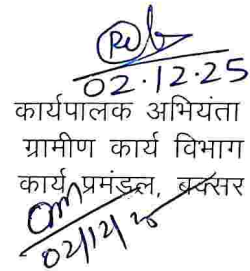 02.12.25
कार्यपालक अभियंता
ग्रामीण कार्य विभाग
कार्य प्रमंडल, बक्सर
02/12/25